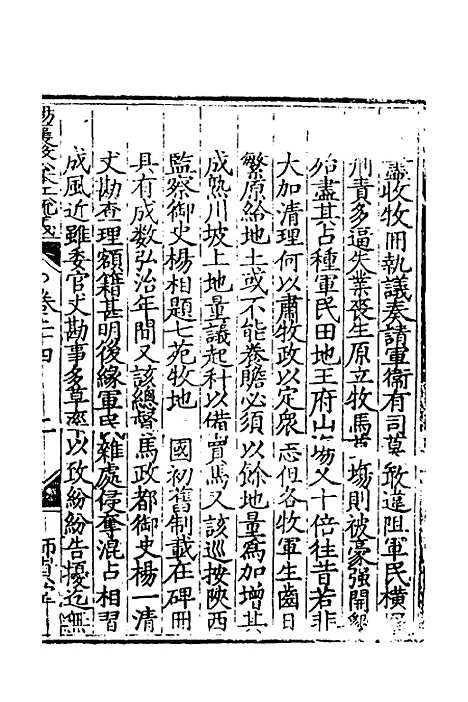 盡收牧冊執議奏請軍衛有司莫敢違阻軍民橫
刑責多逼失業喪生原立牧馬草場則被豪強開墾
殆盡其占種軍民田地王府山場又十倍往昔若非
大加清理何以肅牧政以定衆志但各牧軍生齒日
繁原給地土或不能養贍必須以餘地量爲加增其
成熟川坡上地量議起科以備買馬又該巡按陝西
監察御史楊相題七苑牧地 國初舊制載在碑冊
具有成數弘治年間又該總督馬政都御史楊一清
丈勘查理額籍甚明後緣軍民雜處侵奪混占相習
成風近雖委官丈勘事多草率以攷紛紛告擾迄無
卷二十四